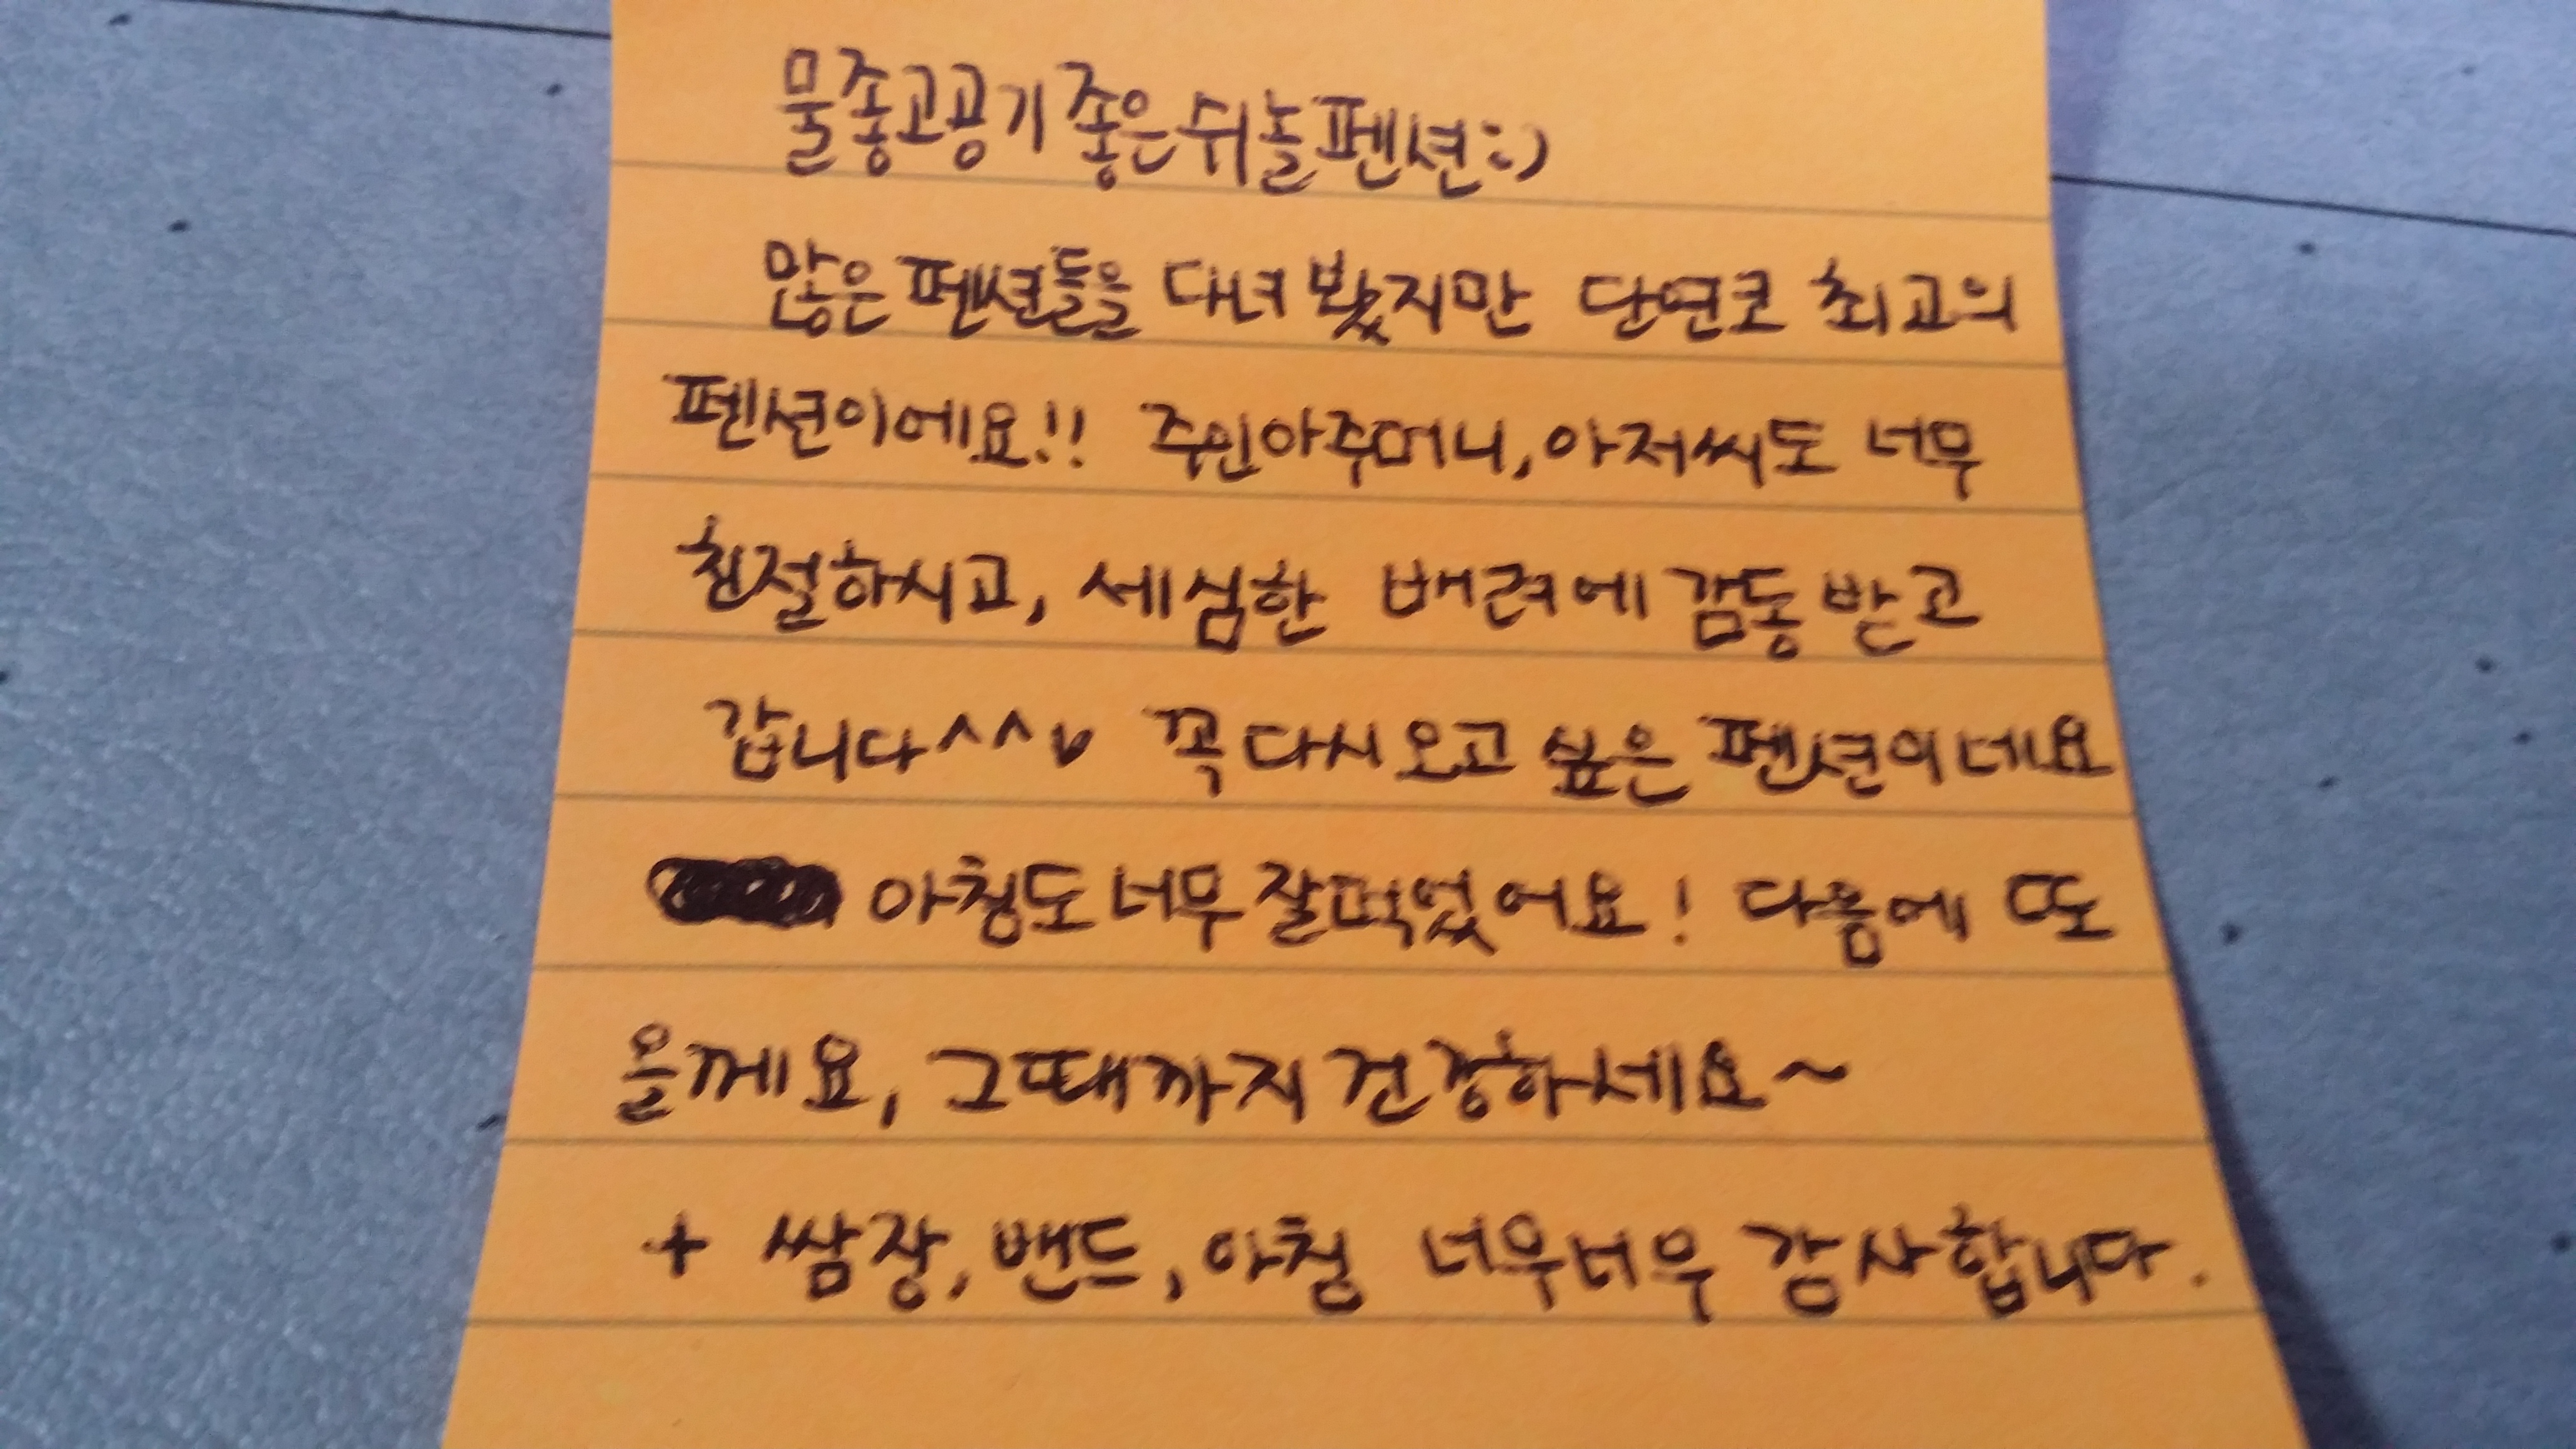 물좋고공기좋은쉬놀펜션:)
많은 펜션들을 대녀 봤지만 단연코 최고의
펜션이에요!! 주인아주머니, 아저씨도 너무
친절하시고, 세심한 배려에 감동 받고
갑니다^^b 꼭 다시오고 싶은 펜션이네요
아침도 너무 잘먹었어요! 다음에 또
올께요, 그때까지 건강하세요~
+ 쌈장, 밴드, 아침 너무너무 감사합니다.